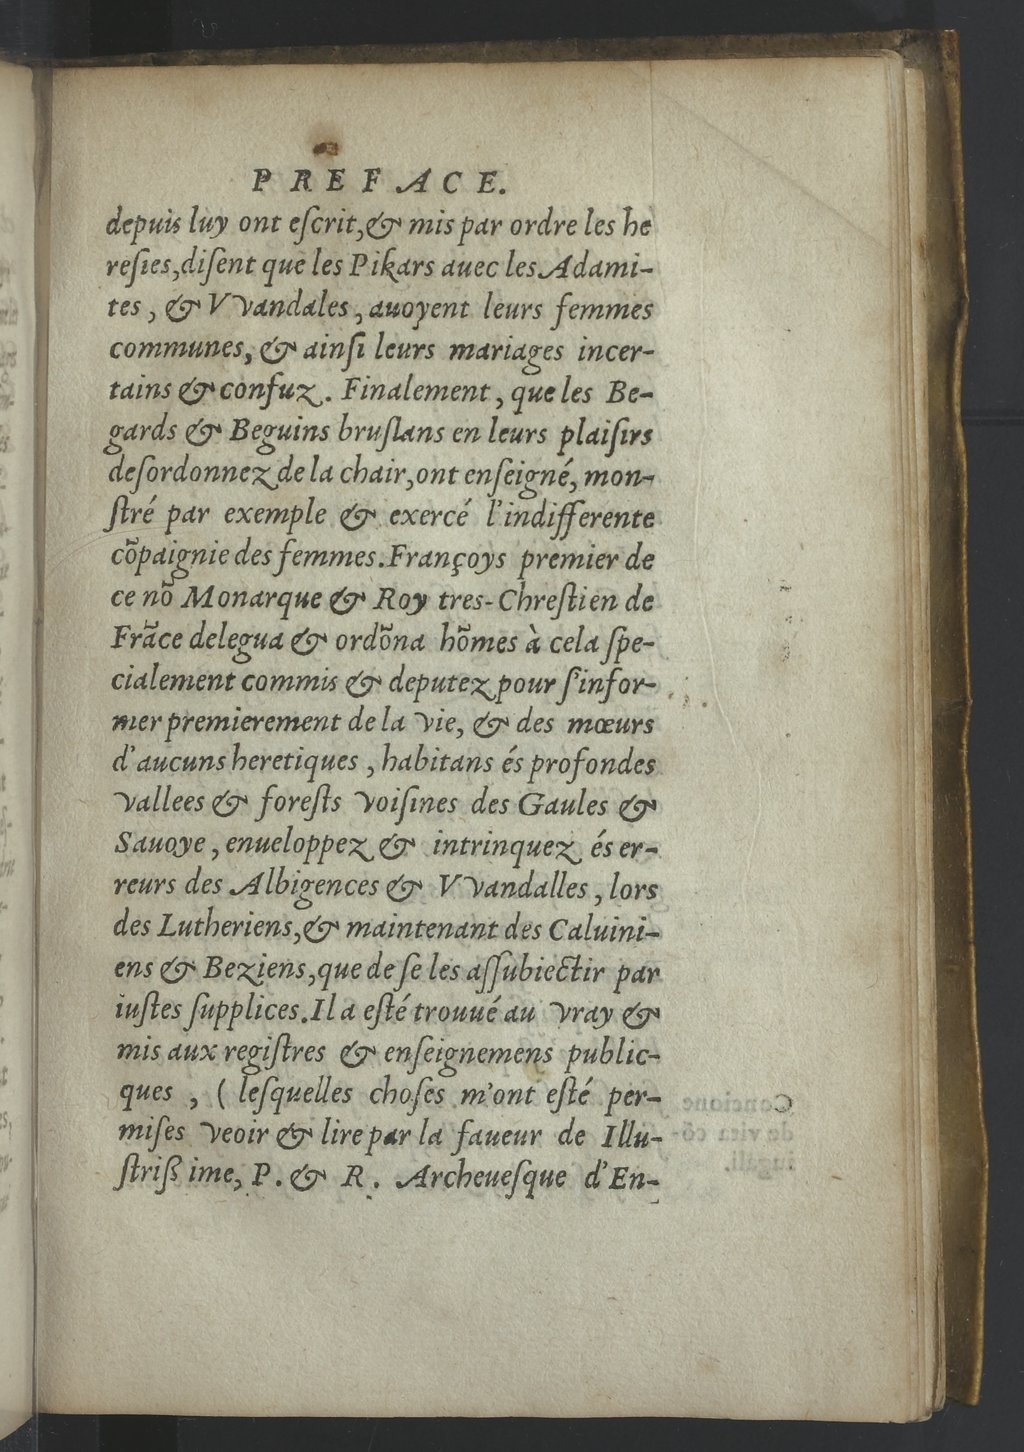 PREFACE.
depuis luy ont eſcrit,& mis par ordre les he
reſies,diſent que les Pikars auec les Adami-
tes, & VVandales, auoyent leurs femmes
communes, & ainſi leurs mariages incer-
tains & confuz. Finalement, que les Be-
gards & Beguins bruſlans en leurs plaiſirs
deſordonnez de la chair,ont enſeigné, mon-
ſtré par exemple & exercé l'indifferente
cõpaignie des femmes.Françoys premier de
ce nõ Monarque & Roy tres-Chreſtien de
Frãce delegua & ordõna hõmes à cela ſpe-
cialement commis & deputez pour ſ'infor-
mer premierement de la vie, & des mœurs
d'aucuns heretiques, habitans és profondes
vallees & foreſts voiſines des Gaules &
Sauoye, enueloppez & intrinquez és er-
reurs des Albigences & VVandalles, lors
des Lutheriens,& maintenant des Caluini-
ens & Beziens,que de ſe les aſſubiectir par
iuſtes ſupplices.Il a eſté trouué au vray &
mis aux regiſtres & enſeignemens public-
ques, ( leſquelles choſes m'ont eſté per-
miſes veoir & lire par la faueur de Illu-
ſtriß ime, P. & R. Archeueſque d'En-
Concione
de vita cõ-
iugali.